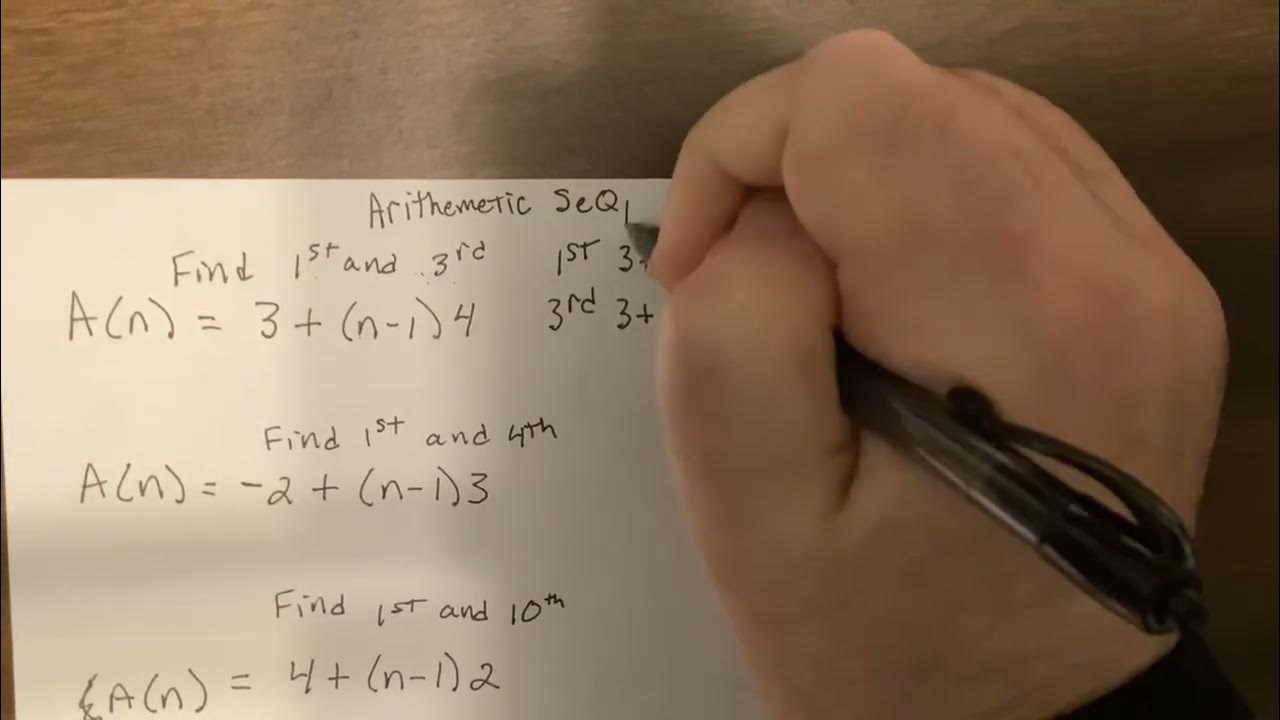 Arithemetic SeQ
Find 1st and 3rd
1st 3+
A(n) = 3 + (n-1)4
3rd 3+
Find 1st and 4th
A(n) = -2 + (n-1)3
Find 1st and 10th
A(n) = 4 + (n-1)2